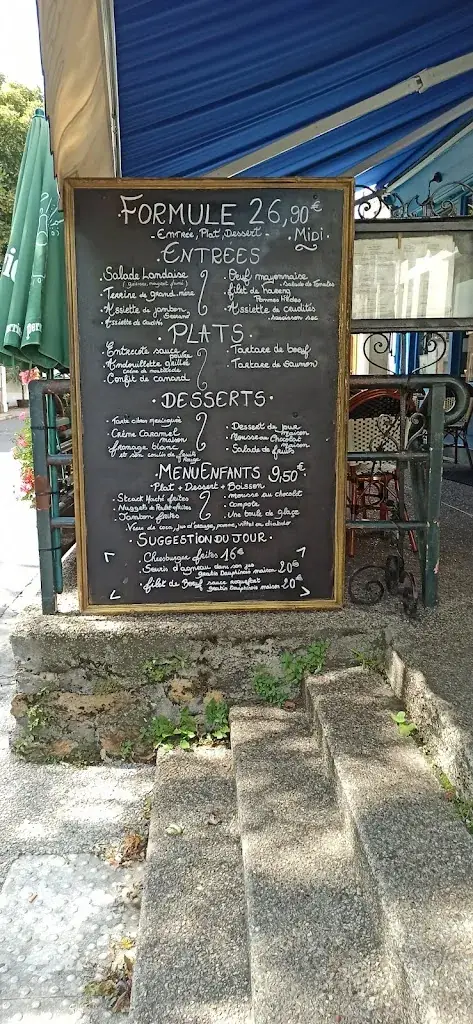 FORMULE 26,90€
- Entrée, Plat, Dessert -
· Midi ·
· ENTRÉES ·
· Salade Landaise
(gésiers, magret fumé)
· Terrine de grand-mère
· Assiette de jambon
Serrano
· Assiette de
· Oeuf mayonnaise
· Salade de Tomates
· filet de hareng
Pommes tièdes
· Assiette de crudités
saucisson sec
· PLATS ·
· Entrecôte sauce
poivre
· Andouillette grillée
crème de moutarde
· Confit de canard
· Tartare de boeuf
· Tartare de Saumon
· DESSERTS ·
· Tarte citron meringuée
· Crème Caramel
maison
· fromage blanc
et son coulis de fruits
Rouge
· Dessert du jour
maison
· Mousse au Chocolat
Maison
· Salade de fruits
· MENU ENFANTS 9,50€
· Plat + Dessert + Boisson
· Steack Haché frites
· Nuggets de Poulet frites
· Jambon frites
· mousse au chocolat
· Compote
· Une boule de Glace
· Verre de coca, jus d'orange, pomme, vittel ou diabolo
· SUGGESTION DU JOUR ·
· Cheesburger frites 16€
· Souris d'agneau dans son jus
gratin Dauphinois maison 20€
· filet de Boeuf sauce roquefort
gratin Dauphinois maison 20€